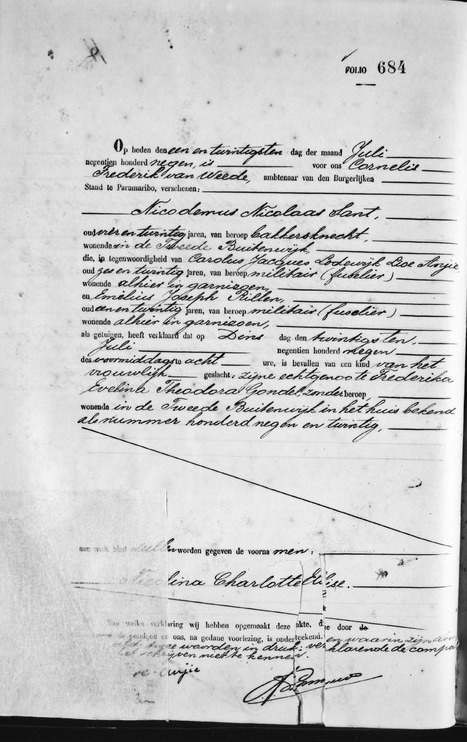 FOLIO 684
Op heden den een en twintigsten dag der maand Juli
negentien honderd negen, is voor ons Cornelis
Frederik van Weede, ambtenaar van den Burgerlijken
Stand te Paramaribo, verschenen:
Nicodemus Nicolaas Sant,
oud vier en twintig jaren, van beroep bakkersknecht
wonende in de Tweede Buitenwijk
die, in tegenwoordigheid van Carolus Jacques Lodewijk
oud zes en twintig jaren, van beroep militair (fuselier)
wonende alhier in garnizoen,
en Emelius Joseph
oud een en twintig jaren, van beroep militair (fuselier)
wonende alhier in garnizoen,
als getuigen, heeft verklaard dat op Dins dag den twintigsten
Juli negentien honderd negen
des voormiddags acht ure, is bevallen van een kind van het
vrouwelijk geslacht, zijne echtgenoote Frederika
Evelina Theodora Gondel, zonder beroep
wonende in de Tweede Buitenwijk in het huis bekend
als nummer honderd negen en twintig,
worden gegeven de voorna men:
lina Charlotte Elise.
Van welke verklaring wij hebben opgemaakt deze akte, door de
ons, na gedane voorlezing, is onderteekend. en waarin zijn
woorden in druk; ver klarende de
schrijven niet te kennen